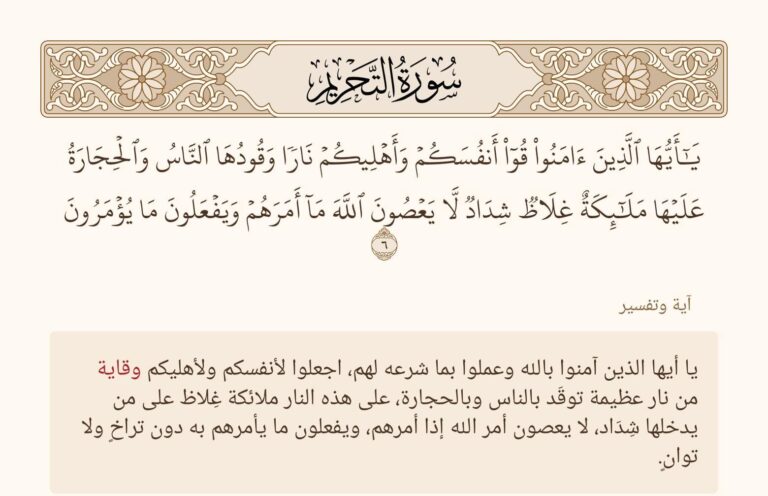 سُورَةُ التَّحْرِيمِ
يَـٰٓأَيُّهَا ٱلَّذِينَ ءَامَنُوا۟ قُوٓا۟ أَنفُسَكُمْ وَأَهْلِيكُمْ نَارًۭا وَقُودُهَا ٱلنَّاسُ وَٱلْحِجَارَةُ
عَلَيْهَا مَلَـٰٓئِكَةٌ غِلَاظٌۭ شِدَادٌۭ لَّا يَعْصُونَ ٱللَّهَ مَآ أَمَرَهُمْ وَيَفْعَلُونَ مَا يُؤْمَرُونَ
٦
آية وتفسير
يا أيها الذين آمنوا بالله وعملوا بما شرعه لهم، اجعلوا لأنفسكم ولأهليكم وقاية
من نار عظيمة توقَد بالناس وبالحجارة، على هذه النار ملائكة غِلاظ على من
يدخلها شِدَاد، لا يعصون أمر الله إذا أمرهم، ويفعلون ما يأمرهم به دون تراخٍ ولا
توانٍ.